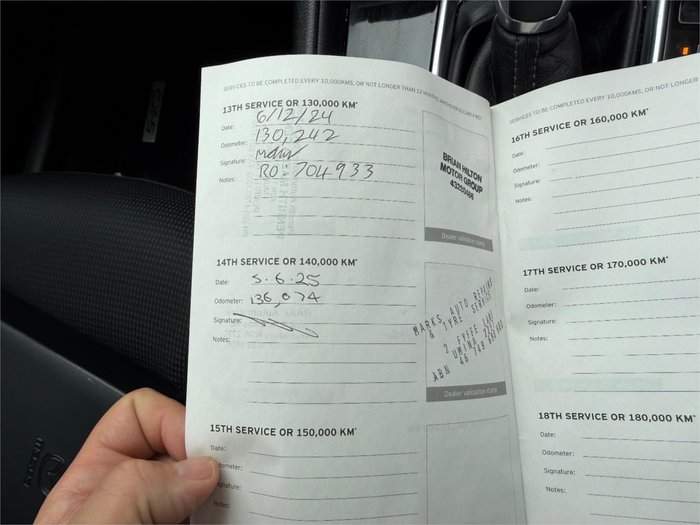 SERVICES TO BE COMPLETED EVERY 10,000KMS, OR NOT LONGER THAN 12 MONTHS, WHICHEVER OCCURS FIRST
13TH SERVICE OR 130,000 KM*
Date: 6/12/24
Odometer: 130,242
Signature:
Notes: RO: 704933
BRIAN HILTON
MOTOR GROUP
Dealer validation stamp
14TH SERVICE OR 140,000 KM*
Date: 5.6.25
Odometer: 136,074
Signature:
Notes:
MARKS AUTO REPAIRS
& TYRE SERVICE
2 FYFFE LANE
UMINA
ABN 46 749
Dealer validation stamp
15TH SERVICE OR 150,000 KM*
Date:
Odometer:
Signature:
Notes:
SERVICES TO BE COMPLETED EVERY 10,000KMS, OR NOT LONGER
16TH SERVICE OR 160,000 KM*
Date:
Odometer:
Signature:
Notes:
17TH SERVICE OR 170,000 KM*
Date:
Odometer:
Signature:
Notes:
18TH SERVICE OR 180,000 KM*
Date:
Odometer:
Signature:
Notes: